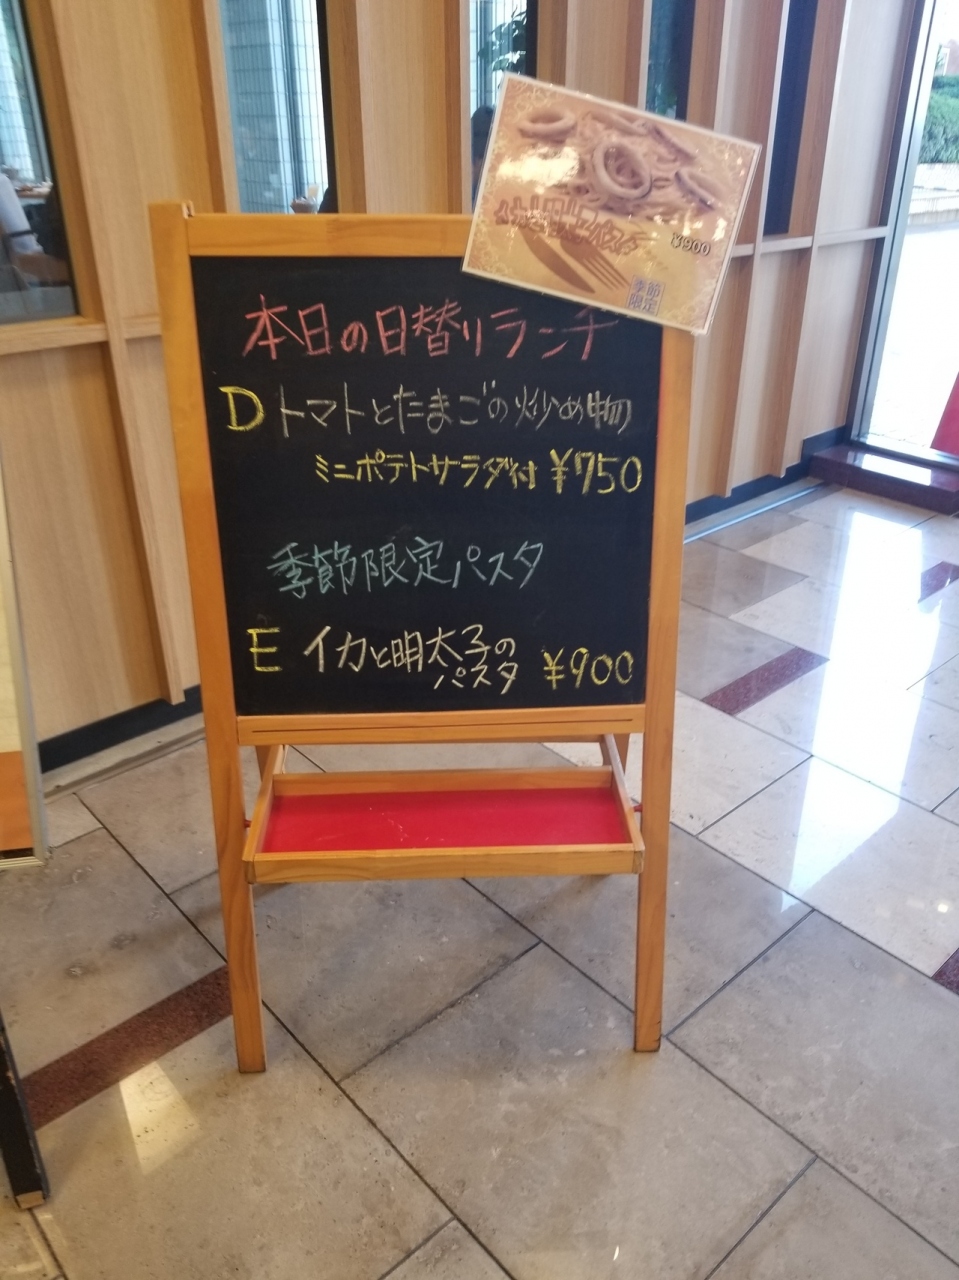 ¥900
季節
限定
本日の日替りランチ
D トマトとたまごの炒め物
ミニポテトサラダ付 ¥750
季節限定パスタ
E イカと明太子の
パスタ ¥900